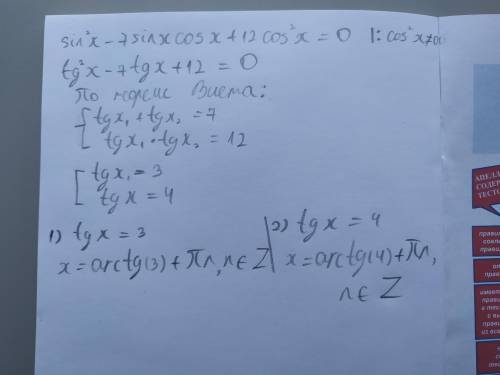 sin²x - 7sinx cosx + 12cos²x = 0 |: cos²x≠0
tg²x - 7tgx + 12 = 0
По теореме Виета:
{tgx₁ + tgx₂ = 7
tgx₁ · tgx₂ = 12
[tgx₁ = 3
tgx = 4
1) tgx = 3
x = arctg(3) + πn, n∈Z
2) tgx = 4
x = arctg(4) + πn,
n∈Z
АПЕЛЛ
СОДЕР
ТЕСТО